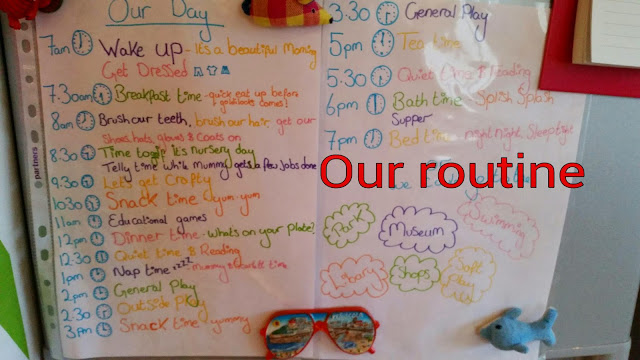 Our Day
7am Wake up - It's a beautiful Morning
Get Dressed
7.30am Breakfast time - quick eat up before
goldilocks comes!
8am Brush our teeth, brush our hair, get our
Shoes, hats, gloves & Coats on
8.30 Time to go if it's nursery day
Telly time while mummy gets a few jobs done
9.30 Lets get Crafty
10.30 Snack time - yum-yum
11am Educational games
12pm Dinner time - whats on your plate?
12.30 Quiet time & Reading
1pm Nap time zzzz - mummy time
2pm General Play
2.30 Outside Play
3pm Snack time - yummy
3.30 General Play
5pm Tea time
5.30 Quiet time Reading
6pm Bath time - Splish Splash
Supper
7pm Bed time - night night Sleep tight
Our routine
we
Park
Museum
Swimming
Libary
Shops
Soft
Play
partners